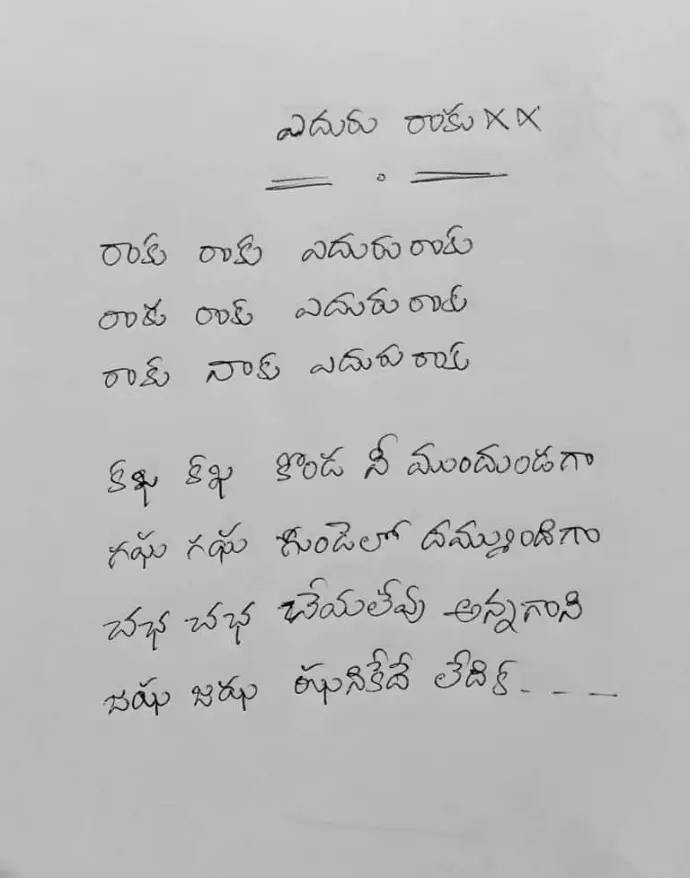 ఎదురు రాకు X X
రాకు రాకు ఎదురు రాకు
రాకు రాకు ఎదురు రాకు
రాకు నాకు ఎదురు రాకు
కఖ కఖ కొండ నీ ముందుండగా
గఘ గఘ గుండెలో దమ్ముందిగా
చఛ చఛ చేయలేవు అన్నగాని
జఝ జఝ ఝనికేదే లేదిక - - -